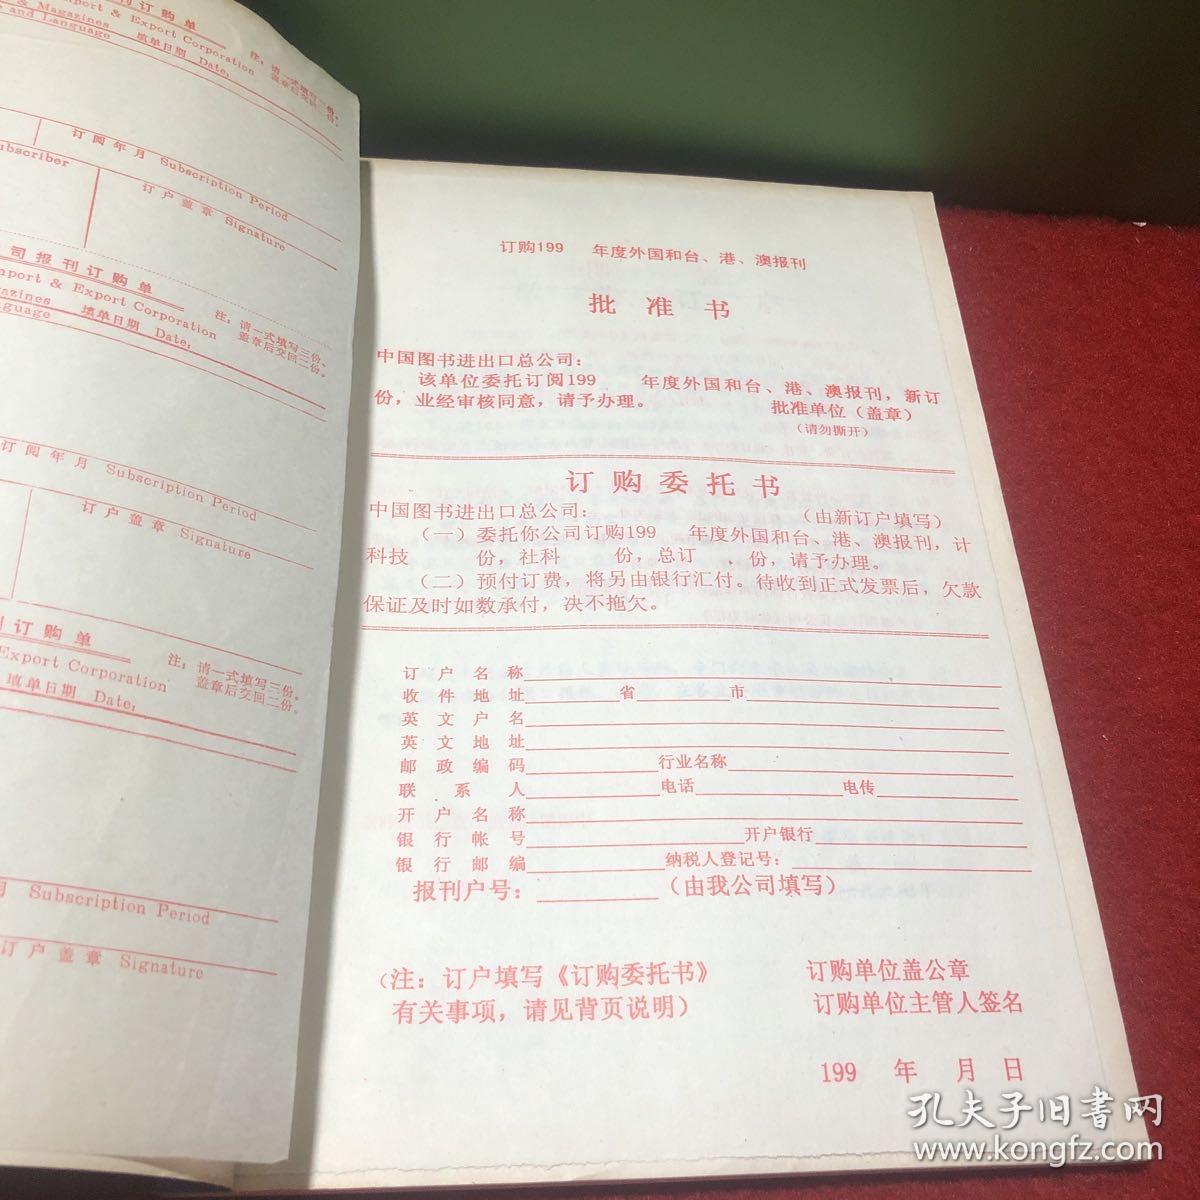 报刊订购单
mport & Export Corporation
& Magazines 填单日期 Date:
e and Language
注：请一式填写三份，
盖章后交回二份。
订阅年月 Subscription Period
ubscriber
订户盖章 Signature
司报刊订购单
mport & Export Corporation
azines 填单日期 Date:
nguage
注：请一式填写三份。
盖章后交回二份。
订阅年月 Subscription Period
订户盖章 Signature
刊订购单
Export Corporation
填单日期 Date:
注：请一式填写三份。
盖章后交回二份。
月 Subscription Period
订户盖章 Signature
订购199 年度外国和台、港、澳报刊
批准书
中国图书进出口总公司：
该单位委托订阅199 年度外国和台、港、澳报刊，新订
份，业经审核同意，请予办理。 批准单位（盖章）
（请勿撕开）
订购委托书
中国图书进出口总公司： （由新订户填写）
（一）委托你公司订购199 年度外国和台、港、澳报刊，计
科技 份，社科 份，总订 、份，请予办理。
（二）预付订费，将另由银行汇付。待收到正式发票后，欠款
保证及时如数承付，决不拖欠。
订户名称
收件地址 省 市
英文户名
英文地址
邮政编码 行业名称
联系人 电话 电传
开户名称
银行帐号 开户银行
银行邮编 纳税人登记号：
报刊户号： （由我公司填写）
（注：订户填写《订购委托书》
有关事项，请见背页说明）
订购单位盖公章
订购单位主管人签名
199 年 月 日
孔夫子旧书网
www.kongfz.com